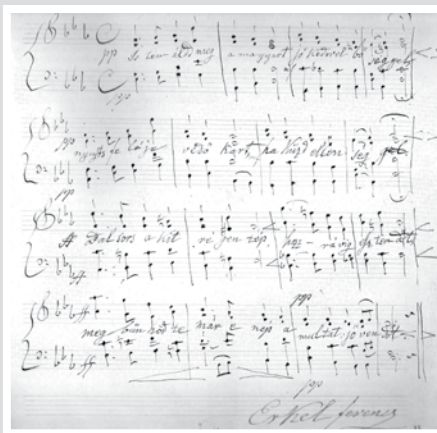 pp Isten áldd meg a magyart jó kedvvel bő séggel
pp
pp nyújts fe léje védő kart, ha küzd ellen ség
pp
ff Balsors a kit ré gen tép, hoz rá víg
ff
ff meg bűn hőd te már e nép a multat jöven dőt
ff
pp
pp
Erkel ferencz